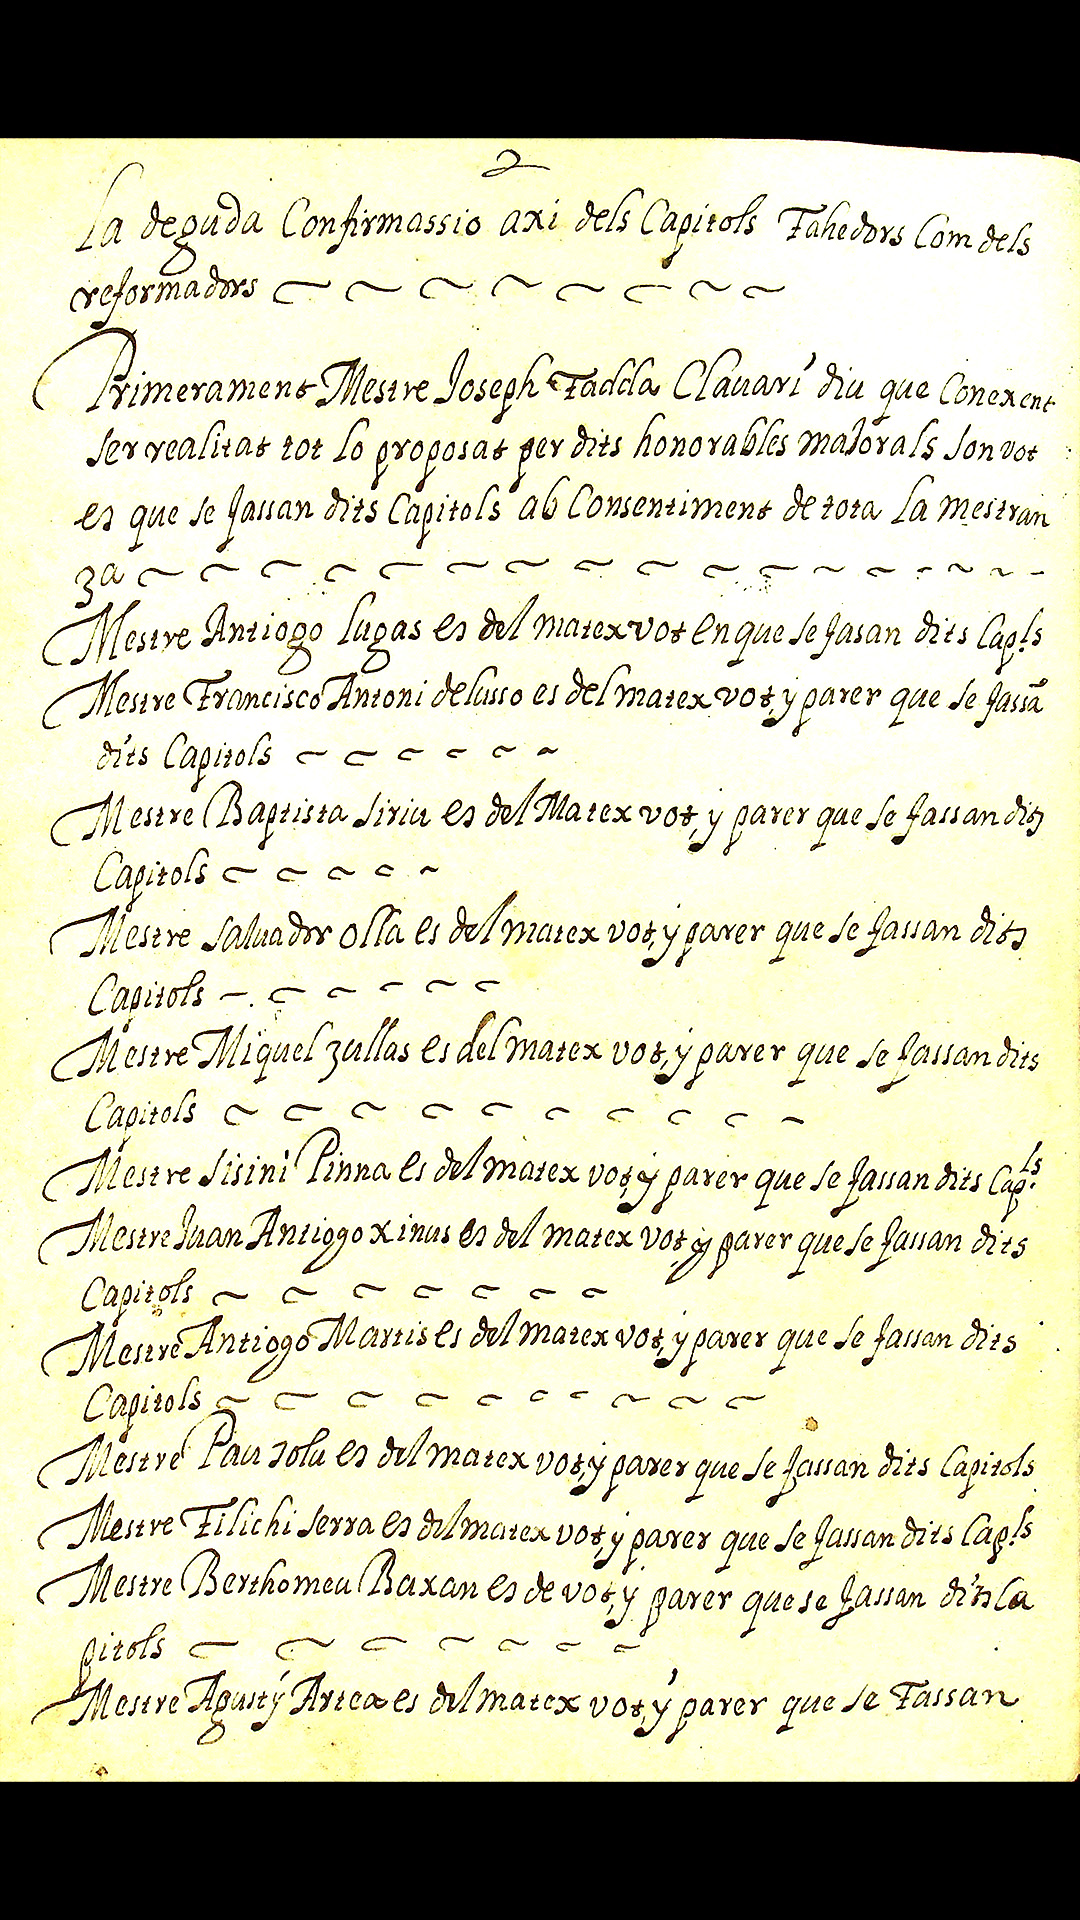 2
La deguda Confirmassio axi dels Capitols Fahedors Com dels
reformadors
Primerament Mestre Joseph Fadda Clauari diu que Conexent
ser realitat tot lo proposat per dits honorables majorals son vot
es que se fassan dits Capitols ab Consentiment de tota La mestran
za
Mestre Antiogo Lugas es del matex vot en que se fasan dits Capls
Mestre Francisco Antoni delusso es del matex vot, y parer que se fassã
dits Capitols
Mestre Baptista siriu es del Matex vot, y parer que se fassan dits
Capitols
Mestre saluador olla es del matex vot, y parer que se fassan dits
Capitols
Mestre Miquel zullas es del matex vot, y parer que se fassan dits
Capitols
Mestre sisini Pinna es del matex vot, y parer que se fassan dits Capls
Mestre Juan Antiogo xinus es del matex vot y parer que se fassan dits
Capitols
Mestre Antiogo Martis es del matex vot, y parer que se fassan dits
Capitols
Mestre Pau solu es del matex vot, y parer que se fassan dits Capitols
Mestre Filichi serra es del matex vot, y parer que se fassan dits Capls
Mestre Berthomeu Baxan es de vot, y parer que se fassan dits Ca
pitols
Mestre Agustÿ Artea es del matex vot, y parer que se Fassan